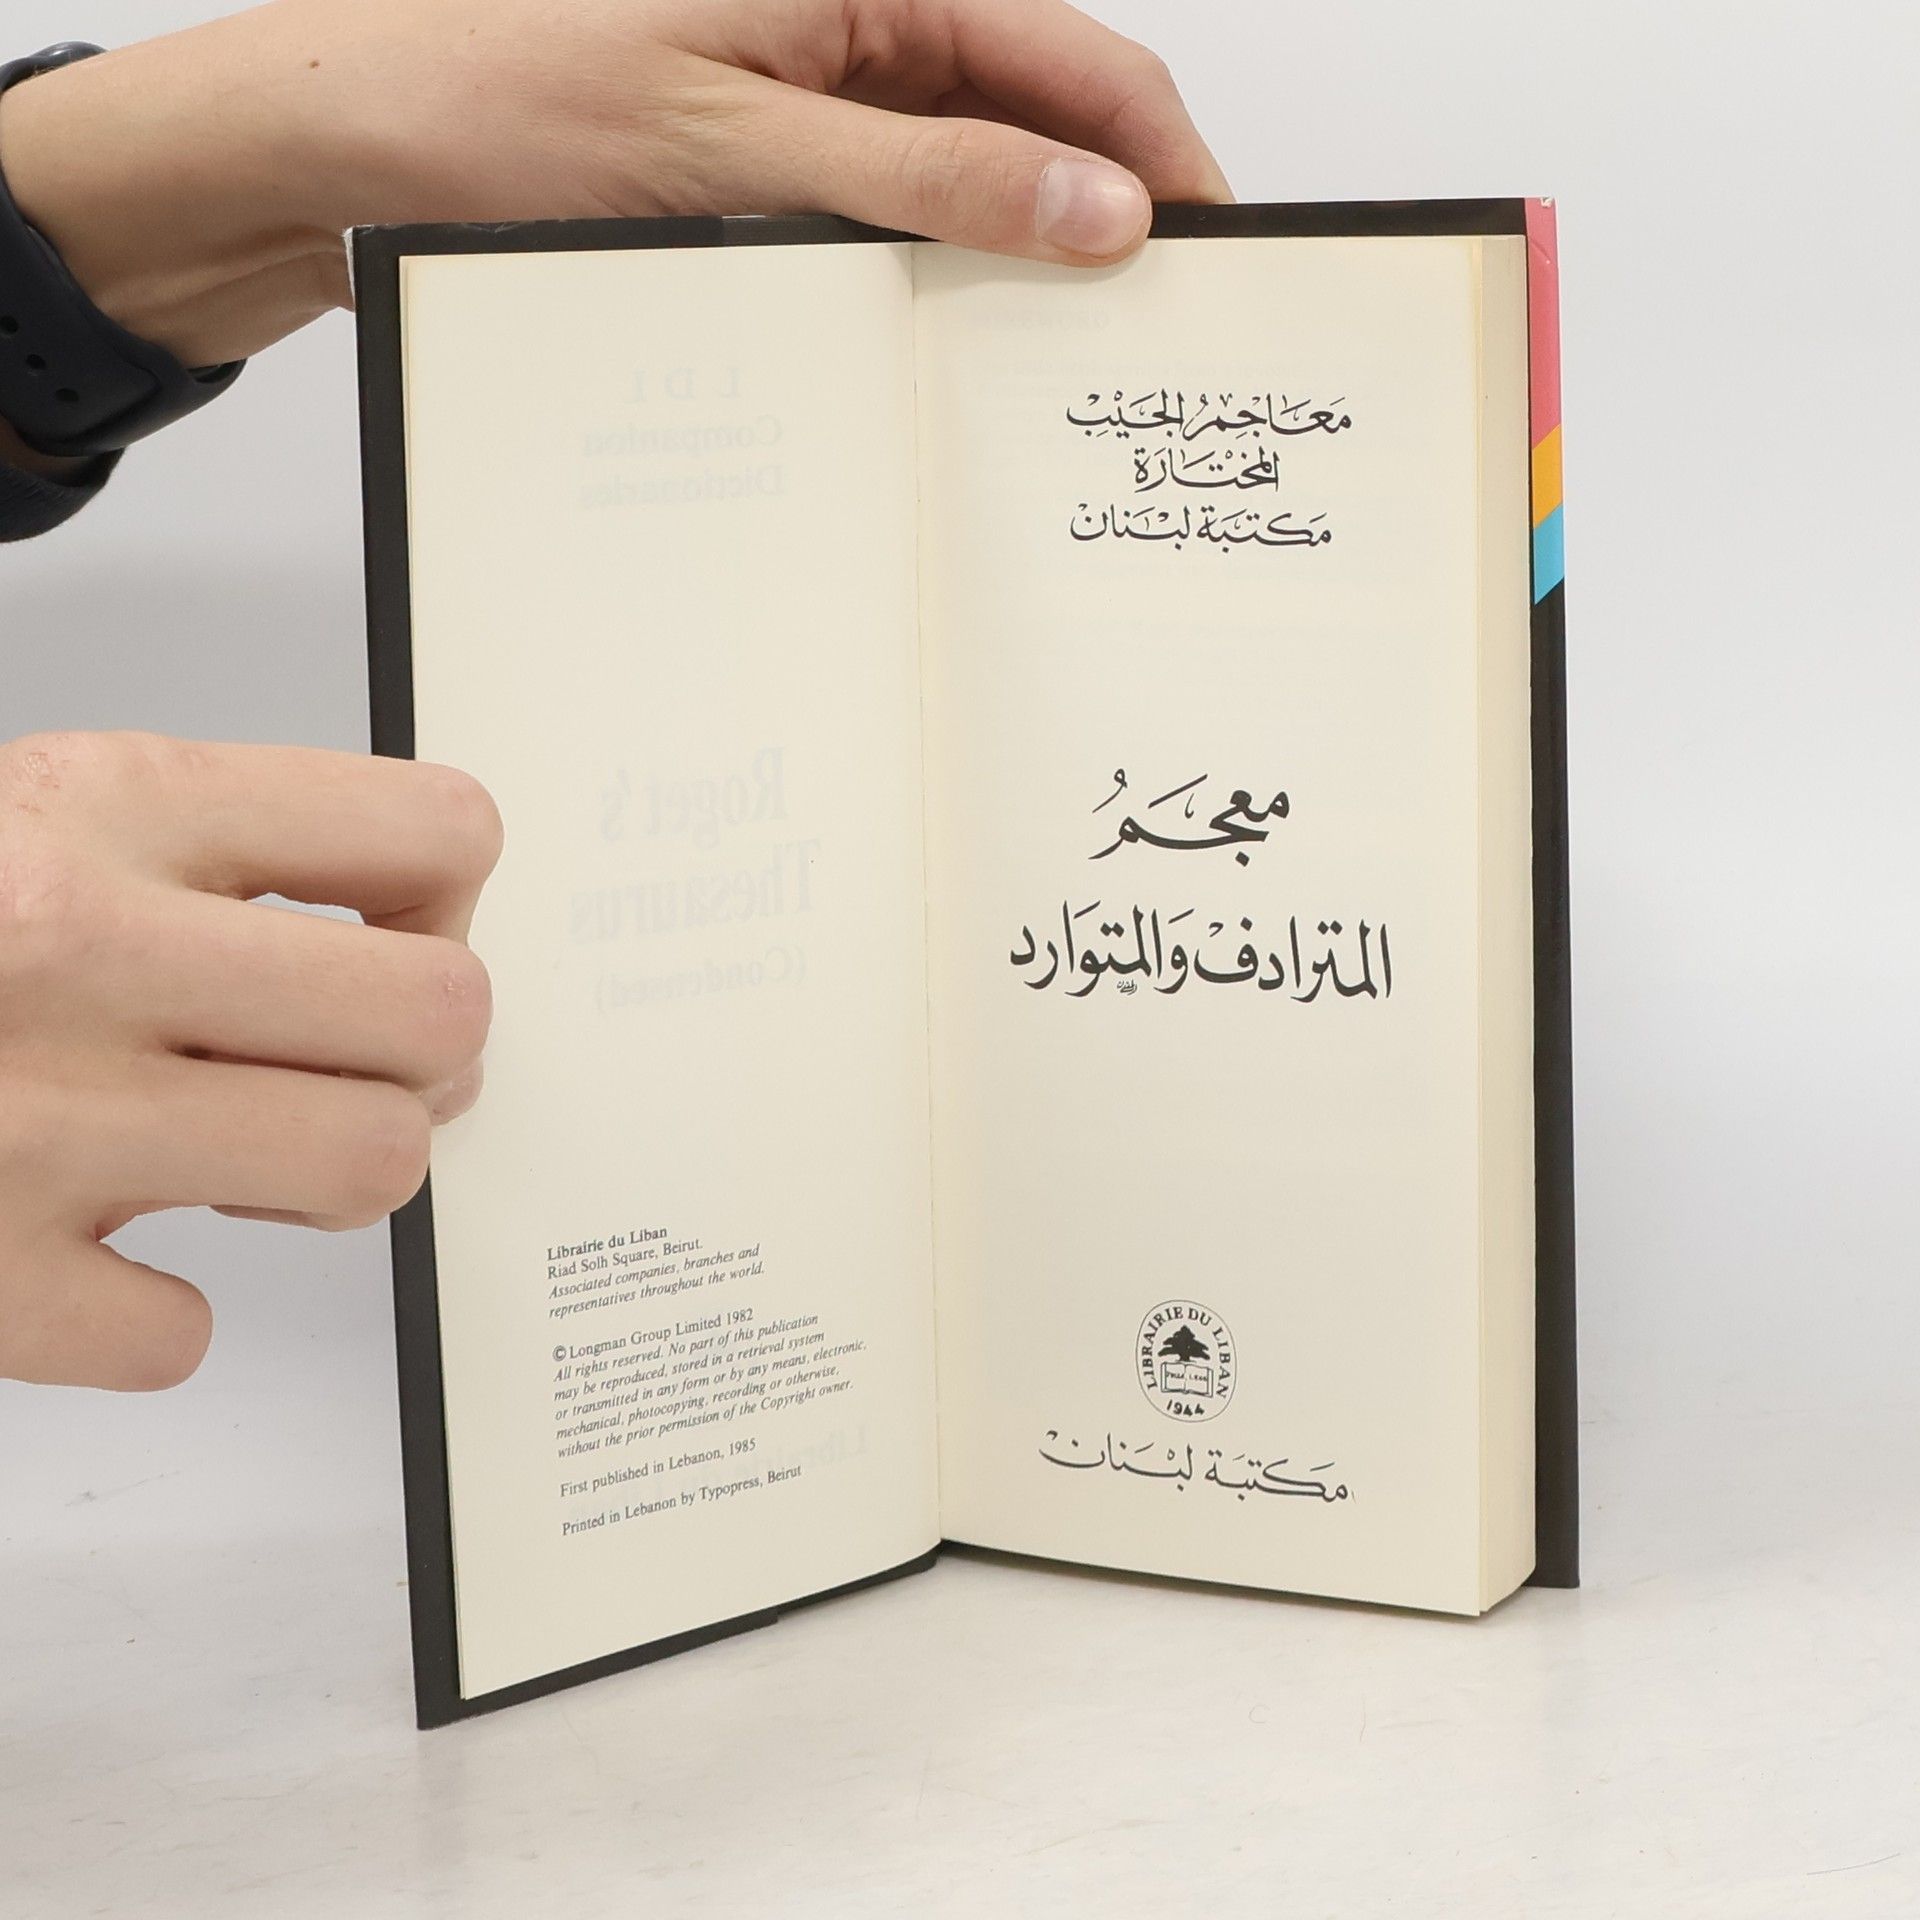 L D L
Companion
Dictionaries
Roget's
Thesaurus
(Condensed)
Librairie du Liban
Riad Solh Square, Beirut.
Associated companies, branches and
representatives throughout the world.
© Longman Group Limited 1982
All rights reserved. No part of this publication
may be reproduced, stored in a retrieval system
or transmitted in any form or by any means, electronic,
mechanical, photocopying, recording or otherwise,
without the prior permission of the Copyright owner.
First published in Lebanon, 1985
Printed in Lebanon by Typopress, Beirut
مَعَاجِمُ الجَيْبِ
المُخْتَارَة
مَكتَبَة لبْنَان
معجَمُ
المترَادفْ وَالمتوَارد
LIBRAIRIE DU LIBAN
1944
مَكتبَة لبْنَان